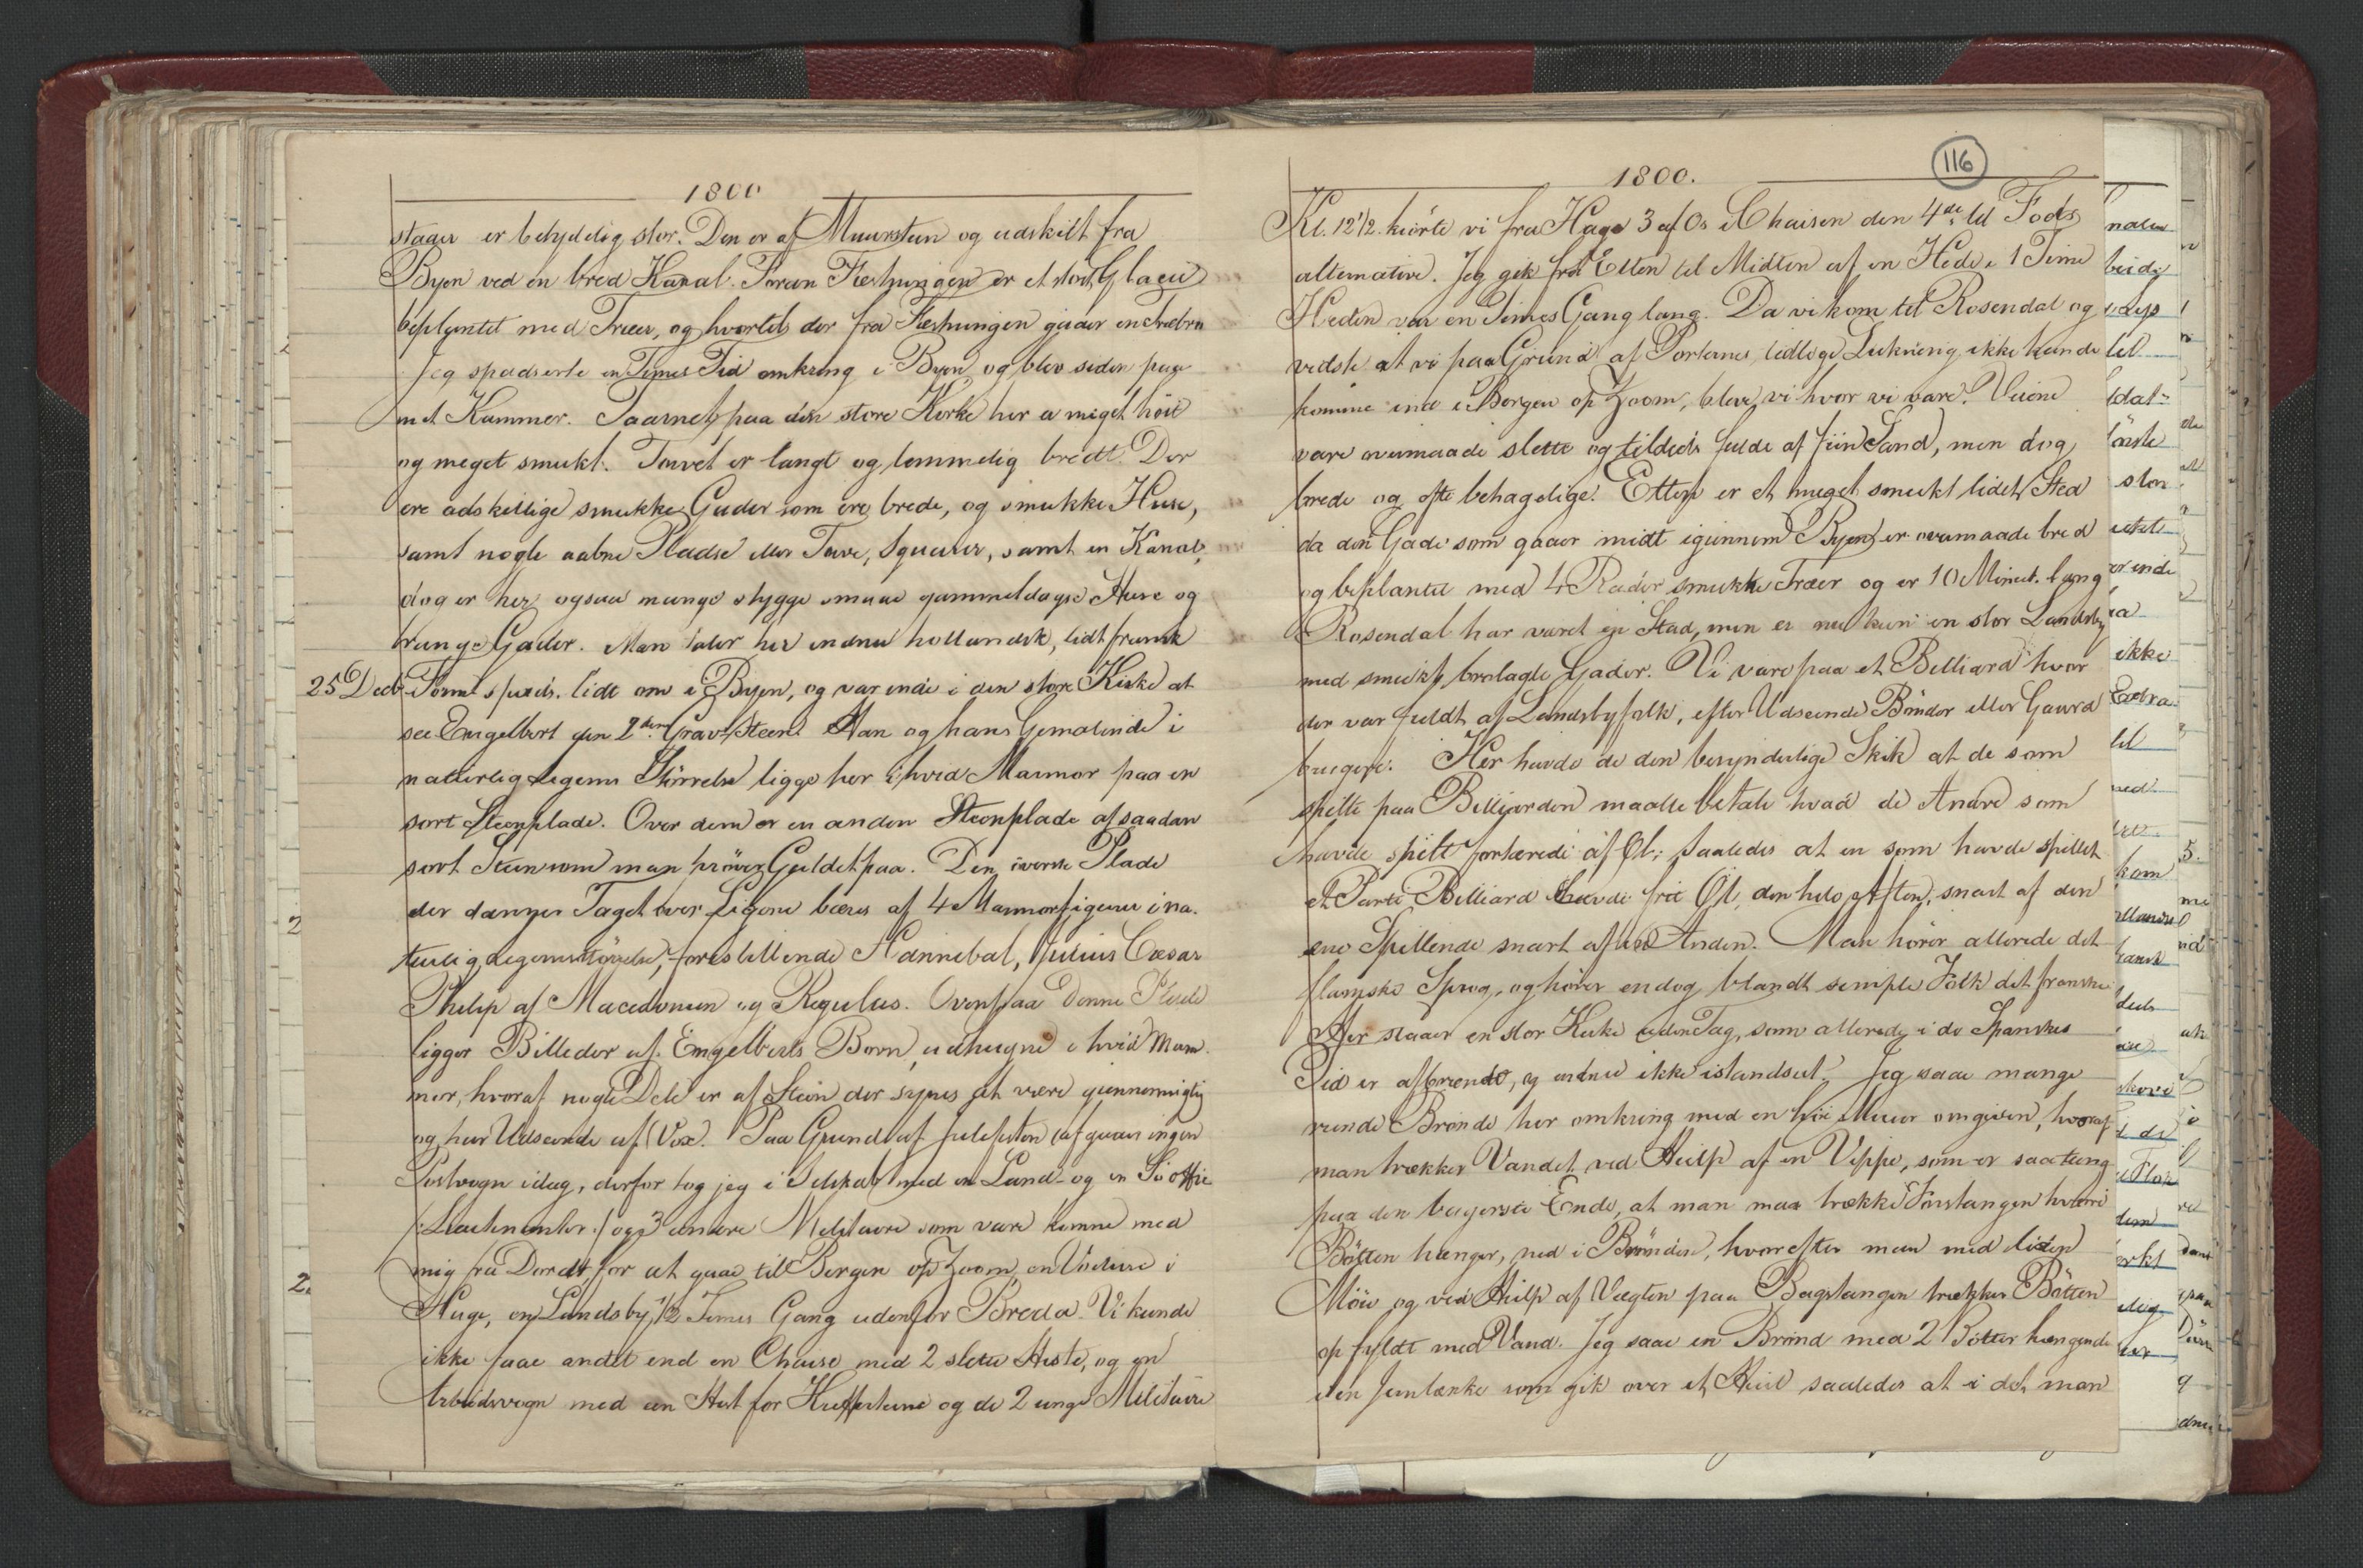 1800
staaer er betydelig stor. Den er af Muursteen og adskilt fra
Byen ved en bred Kanal. Foran Fæstningen er et stort Glacis
beplantet med Træer, og hvortil der fra Fæstningen gaaer en Træbro
Jeg spadserte en Times Tid omkring i Byen og blev siden paa
mit Kammer. Taarnet paa den store Kirke her er meget höit
og meget smukt. Torvet er langt og temmelig bredt. Der
ere adskillige smukke Gader som ere brede, og smukke Huse,
samt nogle aabne Pladse eller Torve, Squarer, samt en Kanal,
dog er her ogsaa mange stygge smaae gammeldagse Huse og
trange Gader. Man taler her endnu hollandsk, lidt fransk
25 Decb. Form. spads. lidt om i Byen, og var inde i den store Kirke at
see Engelbert den 2den Grav-Steen. Han og hans Gemalinde i
naturlig Legems Störrelse ligge her i hvid Marmor paa en
sort Steenplade. Over dem er en anden Steenplade af saadan
sort Steen som man pröver Guldet paa. Den överste Plade
der danner Taget over Ligene bæres af 4 Marmorfigurer i na-
turlig Legemsstörrelse, forestillende Hannibal, Julius Cæsar
Philip af Macedonien og Regulus. Ovenpaa denne Plade
ligger Billeder af Engelberts Börn, udhugne i hvid Mar-
mor, hvoraf nogle Dele er af Steen der synes at være giennemsigtig
og har Udseende af Vox. Paa Grund af Julefesten afgaaer ingen
Postvogn idag, derfor tog jeg i Selskab med en Land- og en Söoffic
(: Lieutnanter :) og 3 andre Militaire som vare komne med
mig fra Dordt, for at gaae til Bergen op Zoom, en Voiture i
Hage, en Landsby 1/2 Times Gang udenfor Breda. Vi kunde
ikke faae andet end en Chaise med 2 slette Heste, og en
Arbeidsvogn med een Hest for Kufferterne og de 2 unge Militaire
116
1800.
Kl. 12 1/2 kiörte vi fra Hage 3 af Os i Chaisen den 4de til Fods
alternative. Jeg gik fra Etten til Midten af en Hede i 1 Time
Heden var en Times Gang lang. Da vi kom til Rosendal og
vidste at vi paa Grund af Portenes tidlige Lukning ikke kunde
komme ind i Bergen op Zoom, bleve vi hvor vi vare. Veiene
vare overmaade slette og tildeels fulde af fiin Sand, men dog
brede og ofte behagelige. Etten er et meget smukt lidet Sted
da den Gade som gaaer midt igiennem Byen er overmaade bred
og beplantet med 4 Rader smukke Træer og er 10 Minut. lang
Rosendal har været en Stad, men er nu kun en stor Landsby
med smukke brolagte Gader. Vi vare paa et Billiard hvor
der var fuldt af Landsbyfolk, efter Udseende Bönder eller Gaard
brugere. Her havde de den besynderlige Skik at de som
spilte paa Billiarden maatte betale hvad de Andre som
havde spilt fortærede af Öl; saaledes at en som havde spillet
et Parti Billiard havde frit Öl den hele Aften, snart af den
ene Spillende snart af den Anden. Man hörer allerede det
flamske Sprog, og hörer endog blandt simple Folk det franske
Her staaer en stor Kirke uden Tag, som allerede i de Spanskes
Tid er afbrændt, og endnu ikke istandsat. Jeg saae mange
runde Brönde her omkring med en höi Muur omgiven, hvoraf
man trækker Vandet ved Hielp af en Vippe, som er saa tung
paa den bagerste Ende, at man maa trække Forstangen hvori
Bötten hænger, ned i Brönden, hvorefter man med liden
Möie og ved Hielp af Vægten paa Bagstangen trækker Bötten
op fyldt med Vand. Jeg saae en Brönd med 2 Bötter hængende
i en Jernlænke som gik over et Hiul saaledes at i det man